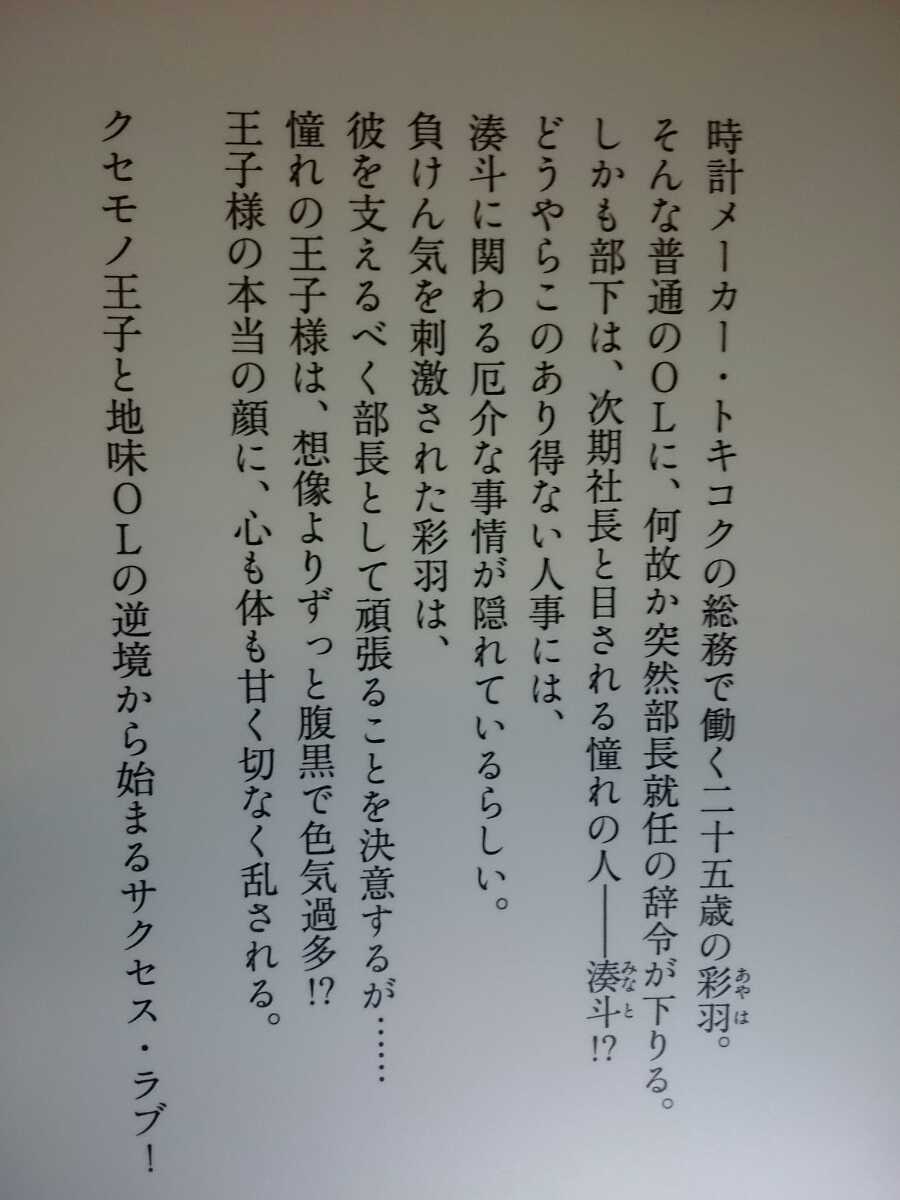 時計メーカー・トキコクの総務で働く二十五歳の彩羽。
あやは
そんな普通のOLに、何故か突然部長就任の辞令が下りる。
しかも部下は、次期社長と目される憧れの人――湊斗!?
みなと
どうやらこのあり得ない人事には、
湊斗に関わる厄介な事情が隠れているらしい。
負けん気を刺激された彩羽は、
彼を支えるべく部長として頑張ることを決意するが……
憧れの王子様は、想像よりずっと腹黒で色気過多!?
王子様の本当の顔に、心も体も甘く切なく乱される。
クセモノ王子と地味OLの逆境から始まるサクセス・ラブ!